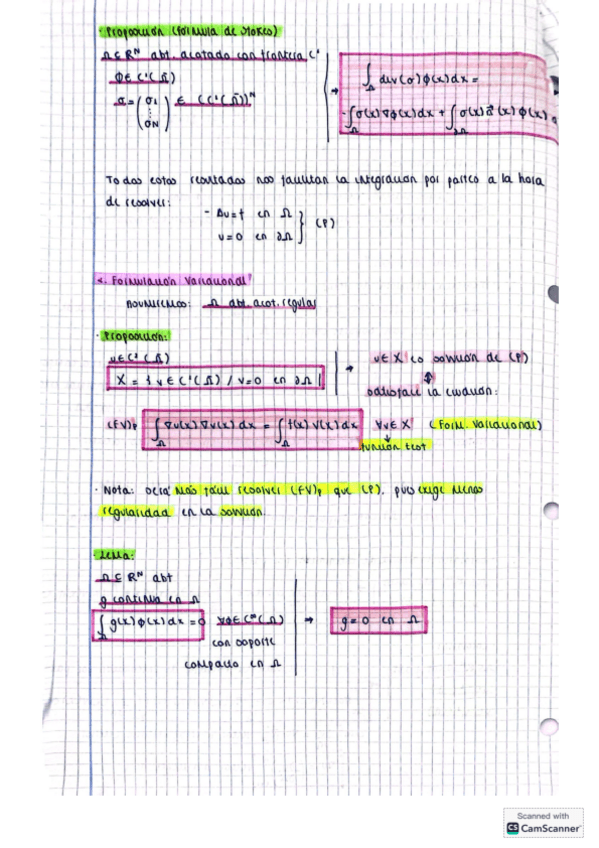 · Proposición (fórmula de Stokes)
Ω ⊆ Rᴺ abt. acotado con frontera C¹
ϕ ∈ C¹(Ω̄)
σ = (σ₁ ⋮ σN) ∈ (C¹(Ω̄))ᴺ
→ ∫_Ω div(σ)ϕ(x)dx =
-∫_Ω σ(x)∇ϕ(x)dx + ∫_∂Ω σ(x)n⃗(x)ϕ(x)
Todos estos resultados nos facilitan la integración por partes a la hora
de resolver:
-Δu = f en Ω
u = 0 en ∂Ω } (P)
Formulación Variacional
Ω abt. acot. regular
· Proposición:
u ∈ C²(Ω̄)
X = { v ∈ C¹(Ω̄) / v=0 en ∂Ω }
→ u ∈ X es solución de (P)
⇕
satisface la ecuación:
(FV)p ∫_Ω ∇u(x)∇v(x)dx = ∫_Ω f(x)v(x)dx ∀v ∈ X (Form. Variacional)
↓
función test
· Nota: será más fácil resolver (FV)p que (P), pues exige menos
regularidad en la solución.
· Lema:
Ω ⊆ Rᴺ abt
g continua en Ω
∫_Ω g(x)ϕ(x)dx = 0 ∀ϕ ∈ C^∞(Ω)
con soporte
compacto en Ω
→ g=0 en Ω
Scanned with
CS CamScanner